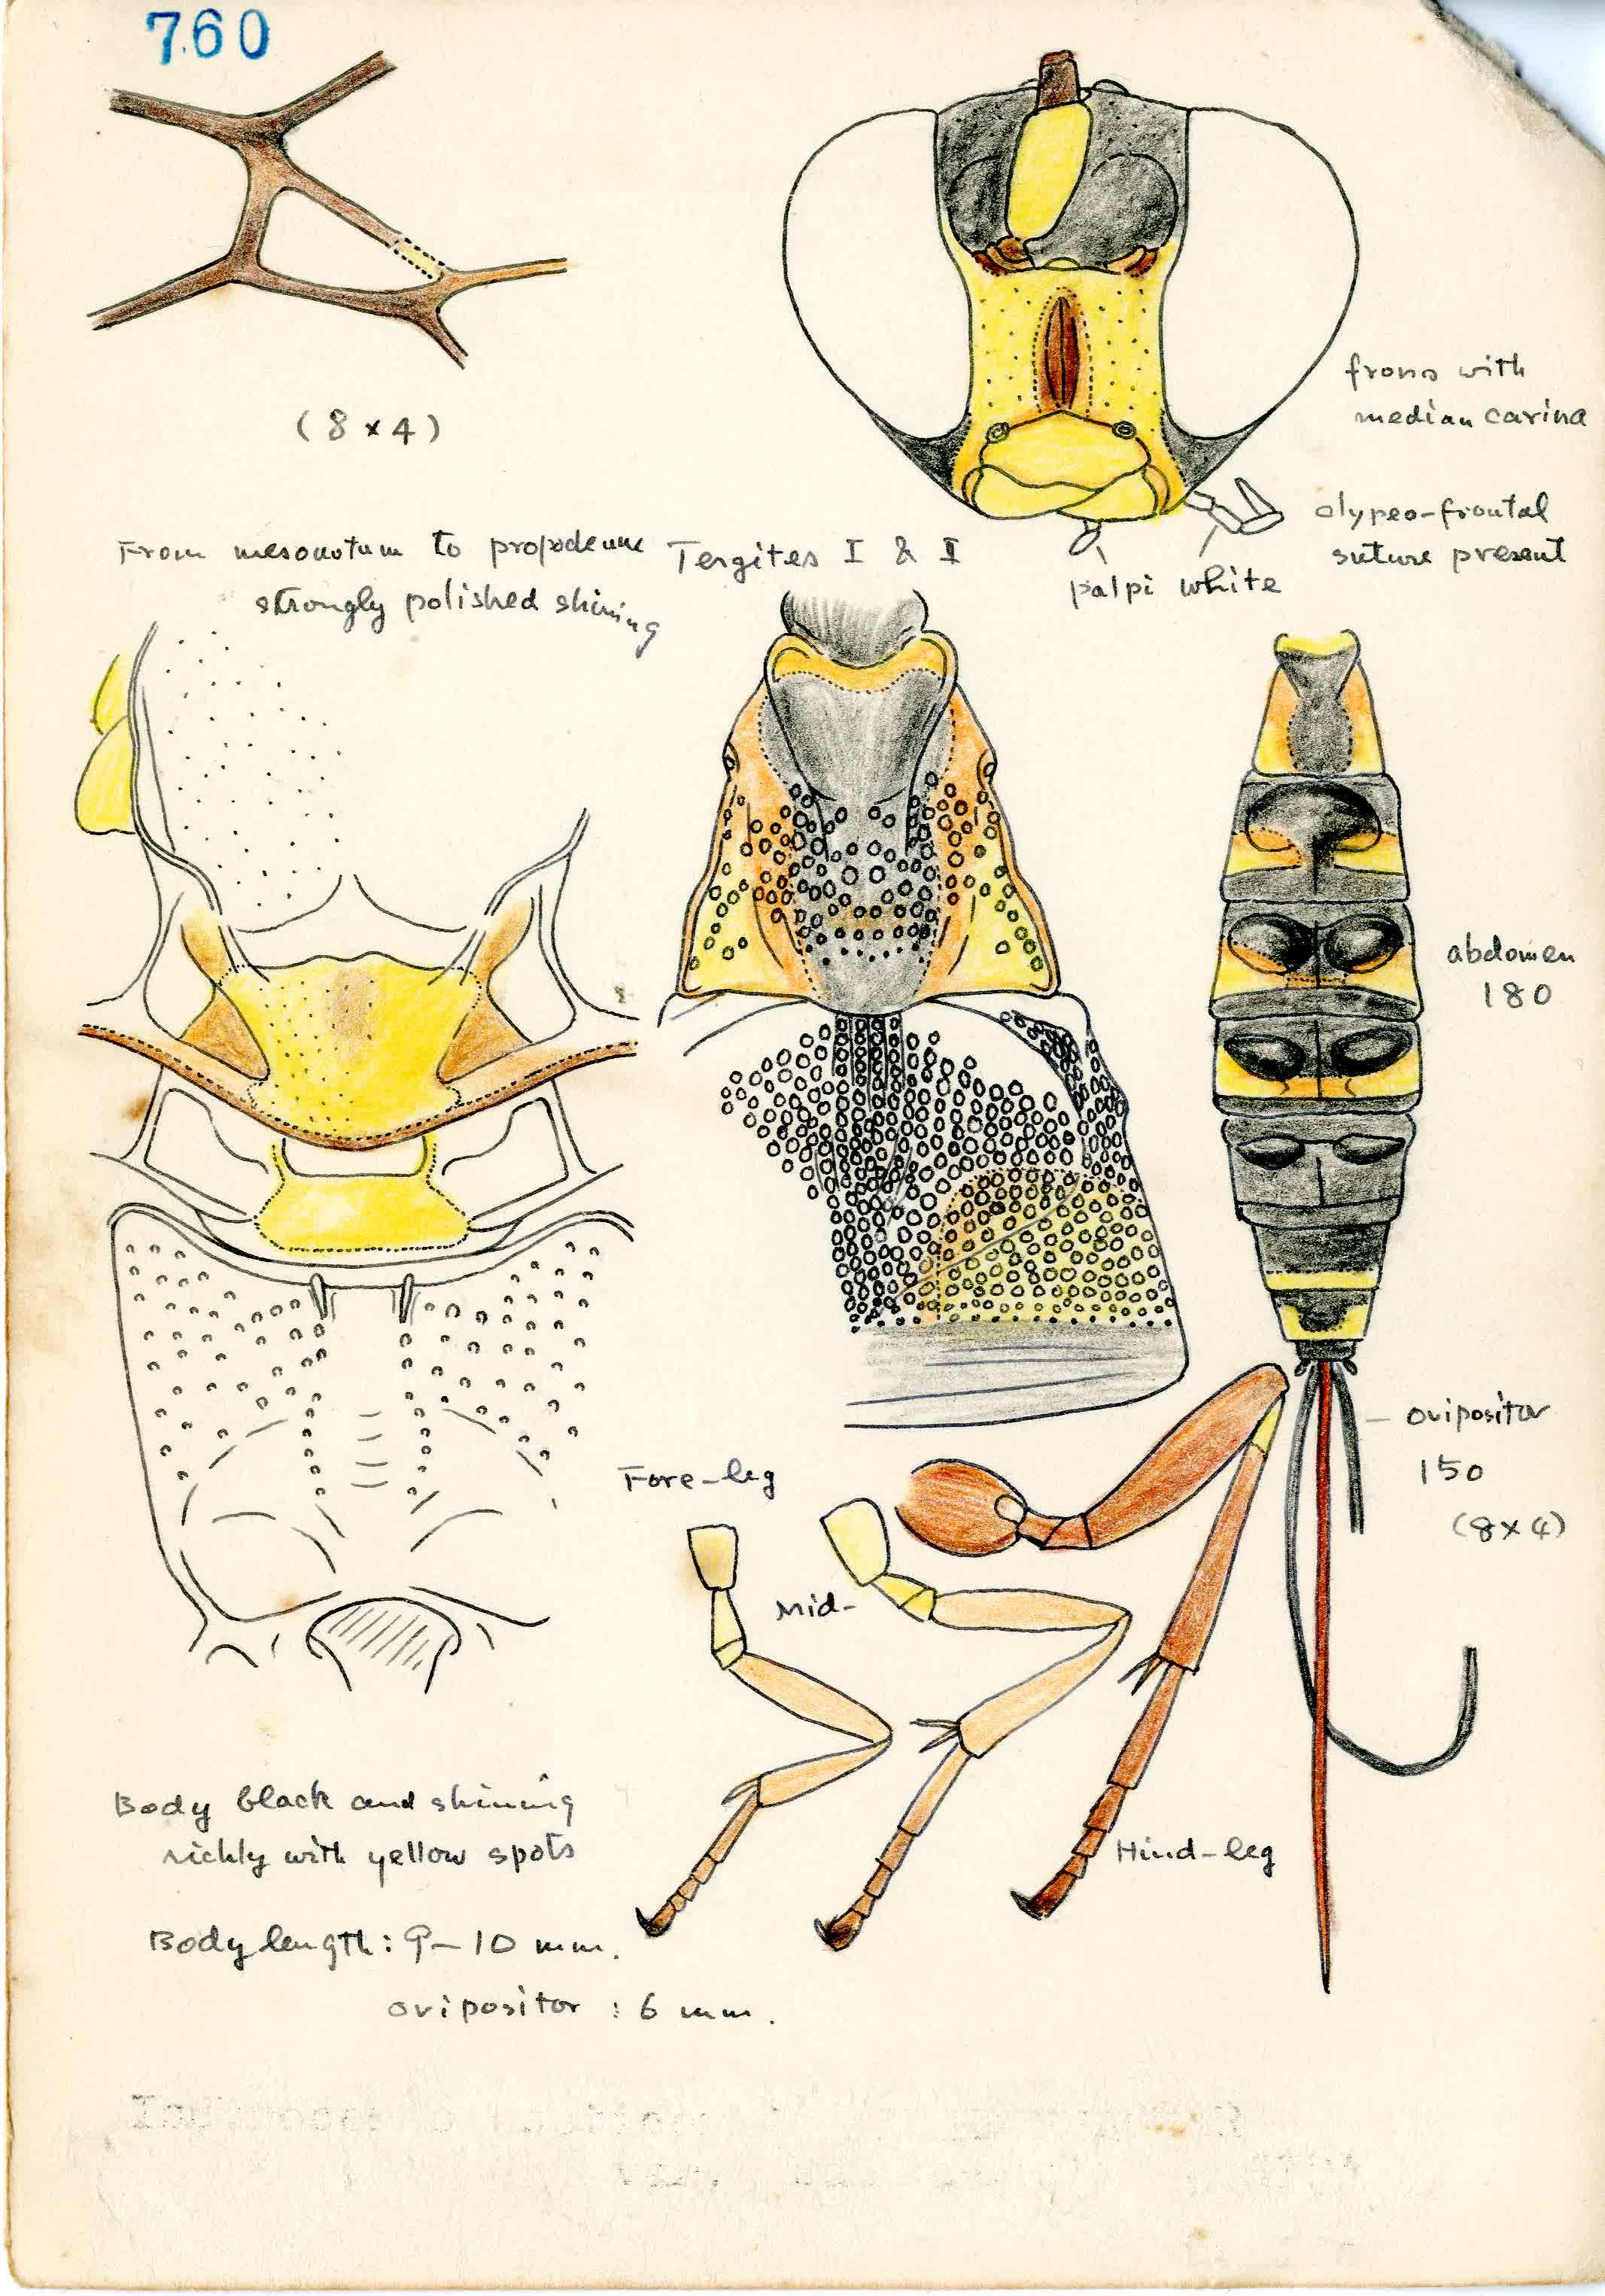 760
(8 x 4)
frons with
median carina
clypeo-frontal
suture present
palpi white
From mesonotum to propodeum
strongly polished shining
Tergites I & II
abdomen
180
ovipositor
150
(8 x 4)
Fore-leg
Mid-
Hind-leg
Body black and shining
richly with yellow spots
Body length: 9-10 mm.
ovipositor : 6 mm.